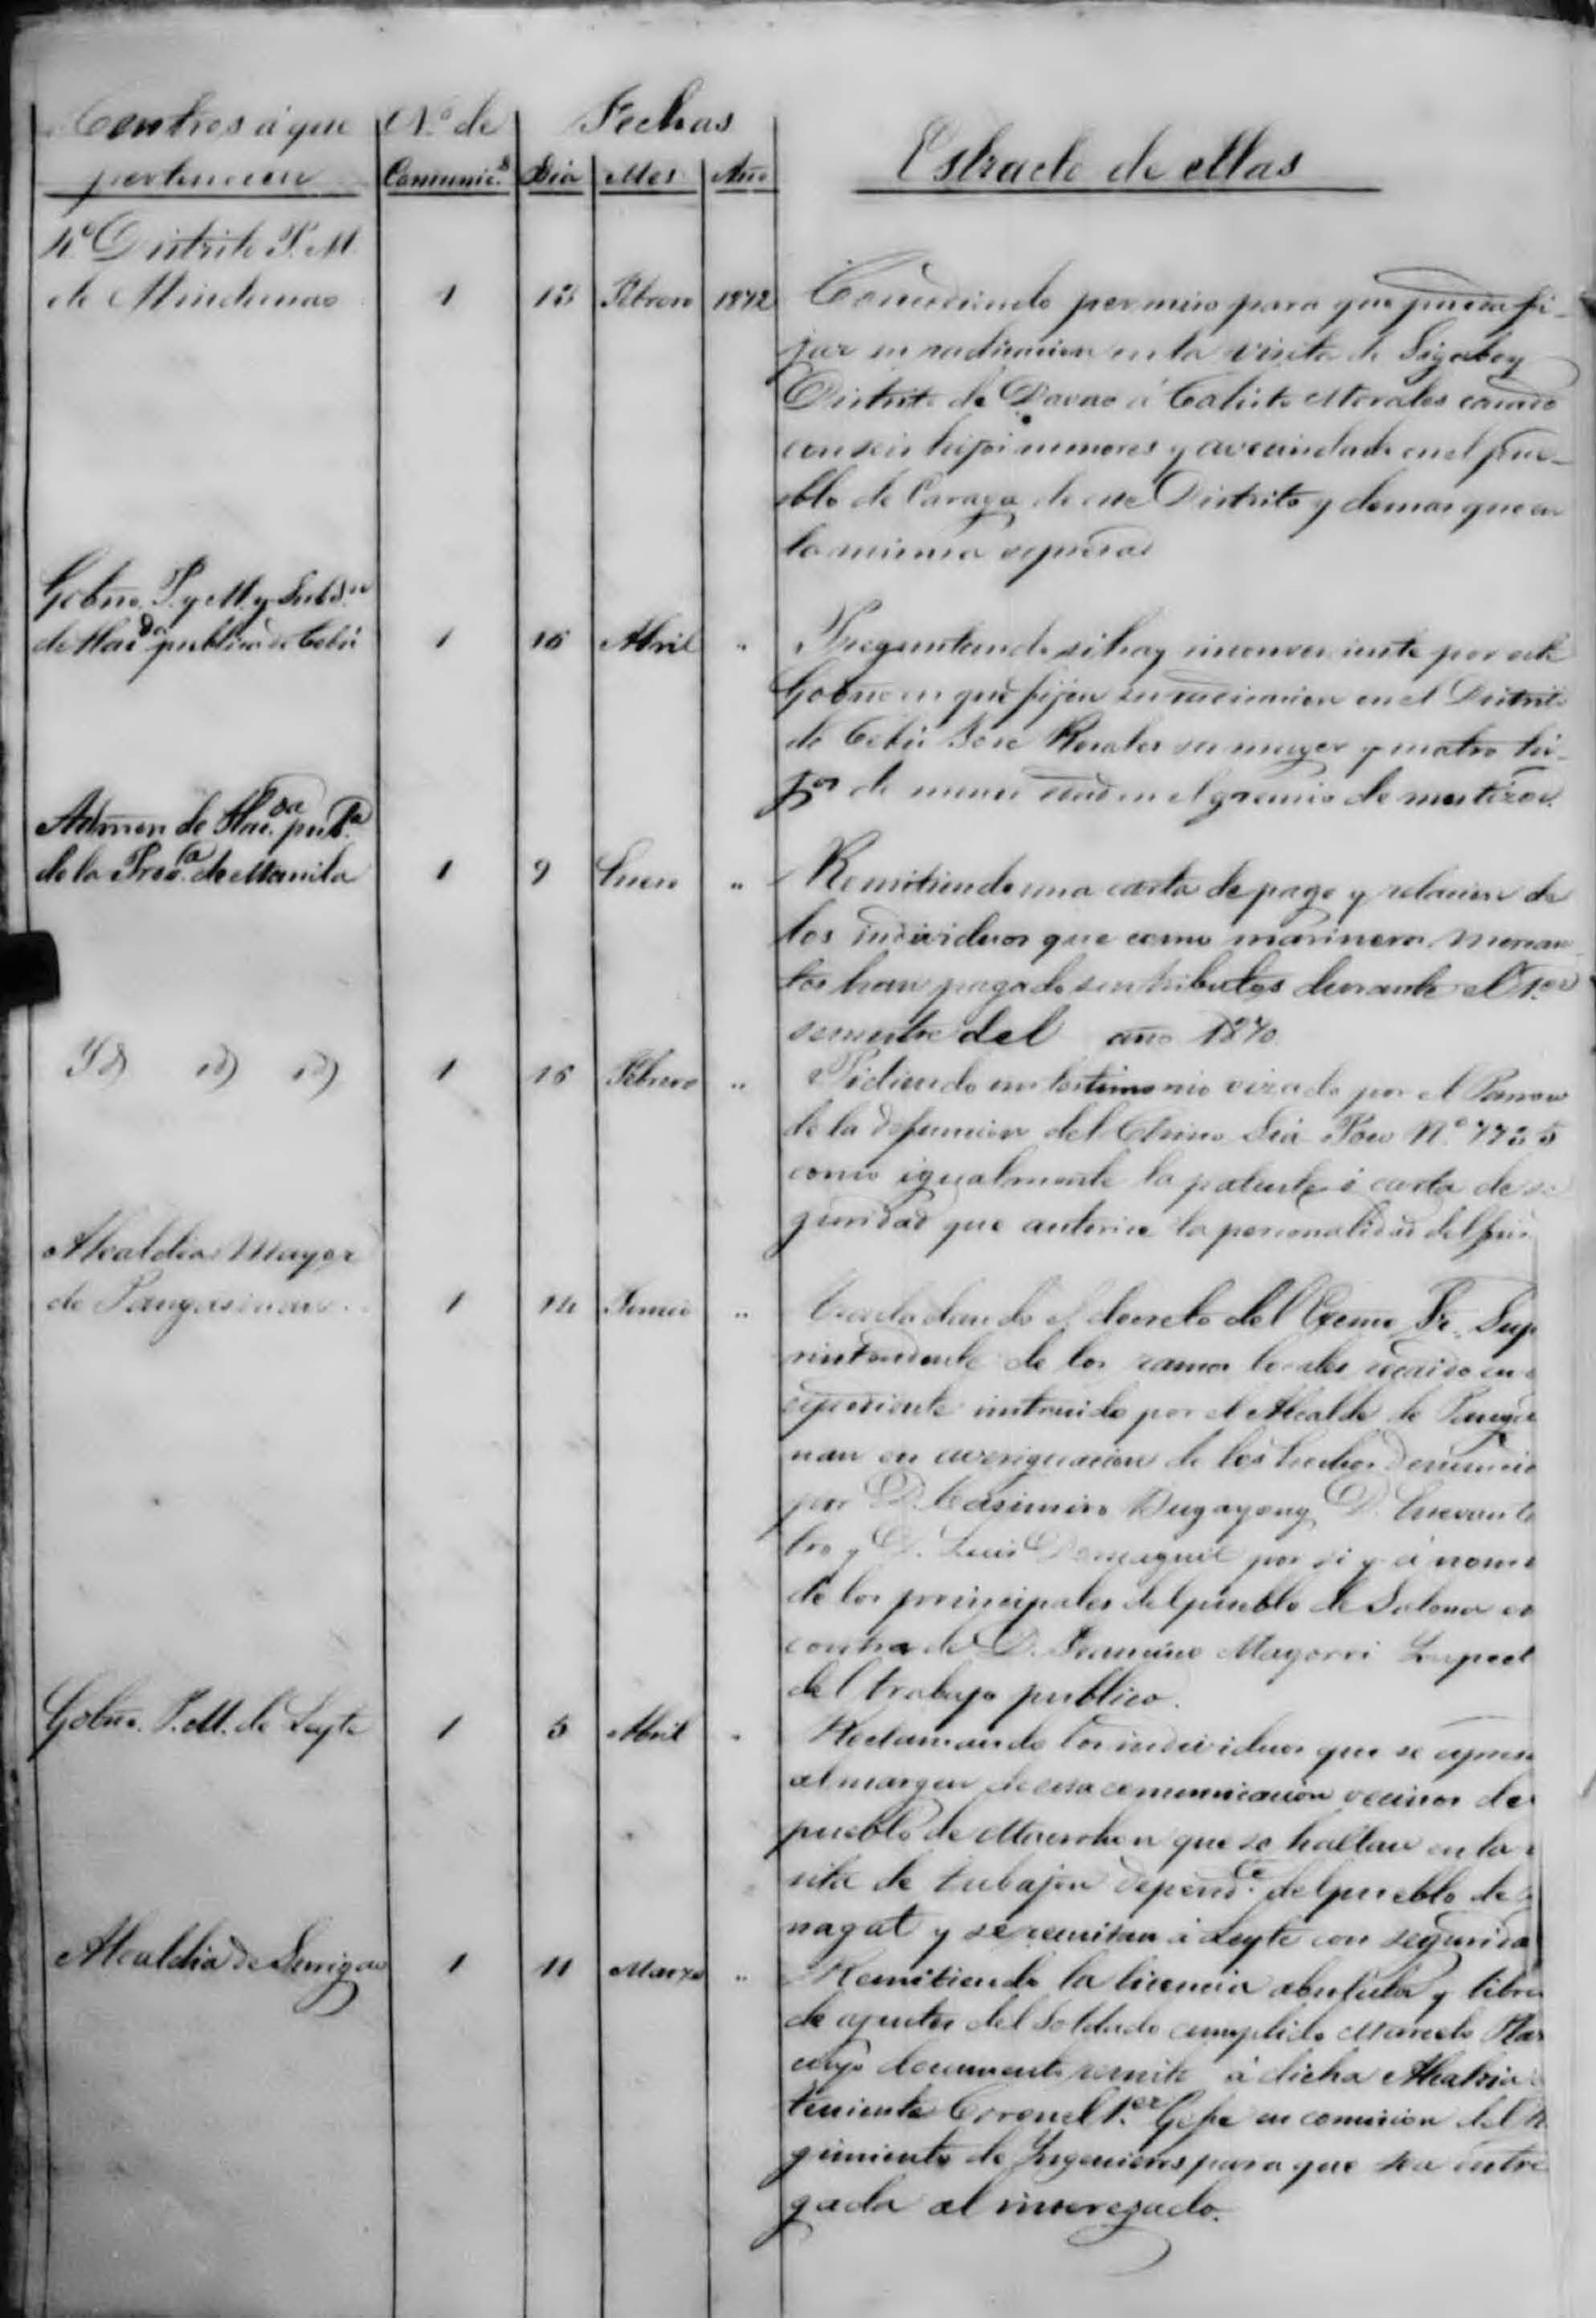 Centros á que Nº de Fechas
pertenecen Comunic.s Dia Mes Año Estracto de ellas
4º Distrito P. M.
de Mindanao 1 15 Febrero 1872 Concediendo permiso para que pueda fi-
jar su radicacion en la visita de Sigaboy
Distrito de Davao á Calisto Morales casado
con seis hijos menores y avecindado en el pue-
blo de Caraga de ese Distrito y demas que en
la misma espresa
Gobno. P. y M. y Subd.n
de Hac.da publica de Cebú 1 16 Abril " Preguntando si hay inconveniente por este
Gobno en que fijen su radicacion en el Distrito
de Cebú José Rosales su muger y cuatro hi-
jos de menor edad en el gremio de mestizos.
Admon de Hac.da pub.ca
de la Prov.a de Manila 1 9 Enero " Remitiendo una carta de pago y relacion de
los individuos que como marineros mercan
tes han pagado sus tributos durante el 1.er
semestre del año 1870
Id id id 1 16 Febrero " Pidiendo un testimonio visado por el Parroco
de la defuncion del Chino Sia Nº 7735
como igualmente la patente ó carta de se
guridad que autorice la personalidad del
Alcaldia Mayor
de Pangasinan 1 14 Junio " Trasladando el decreto del Excmo Sr. Sup
rintendente de los ramos locales recaido en
espediente instruido por el Alcalde de Pangasi
nan en averiguacion de los hechos denuncia
por D. Casimiro Dugayong D.
tro y D. Luis por si y á nom
de los principales del pueblo de en
contra de D. Inspect
del trabajo publico.
Gobno. P. M. de Leyte 1 5 Abril " Reclamando los individuos que se espresa
al margen de esa comunicacion vecinos de
pueblo de que se hallan en la
sita de Tubajon depend.te del pueblo de
nagat y se remitan á Leyte con segurida
Alcaldia de Surigao 1 11 Marzo " Remitiendo la licencia absoluta y libre
de ajustes del Soldado cumplido Marcelo
cuyo documento remite á dicha Alcaldia
teniente Coronel 1.er Gefe en comision del R
gimiento de Ingenieros para que sea entre
gada al interezado.